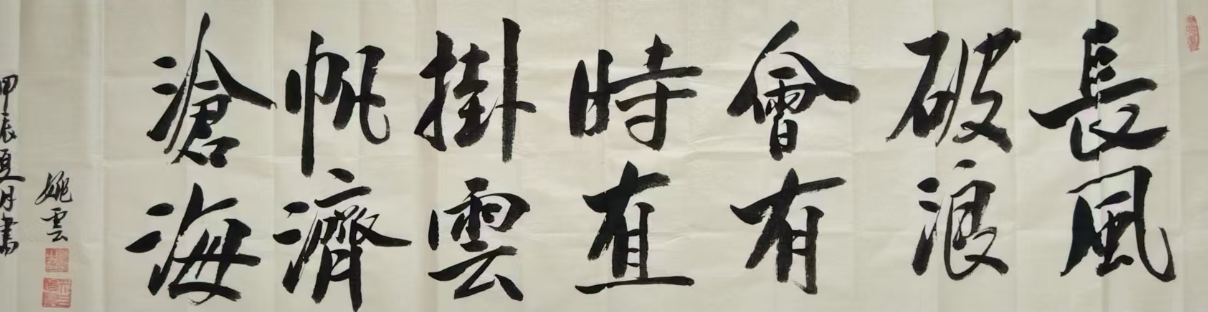 長風
破浪
會有
時直
掛雲
帆濟
滄海
甲辰夏月書
姚雲